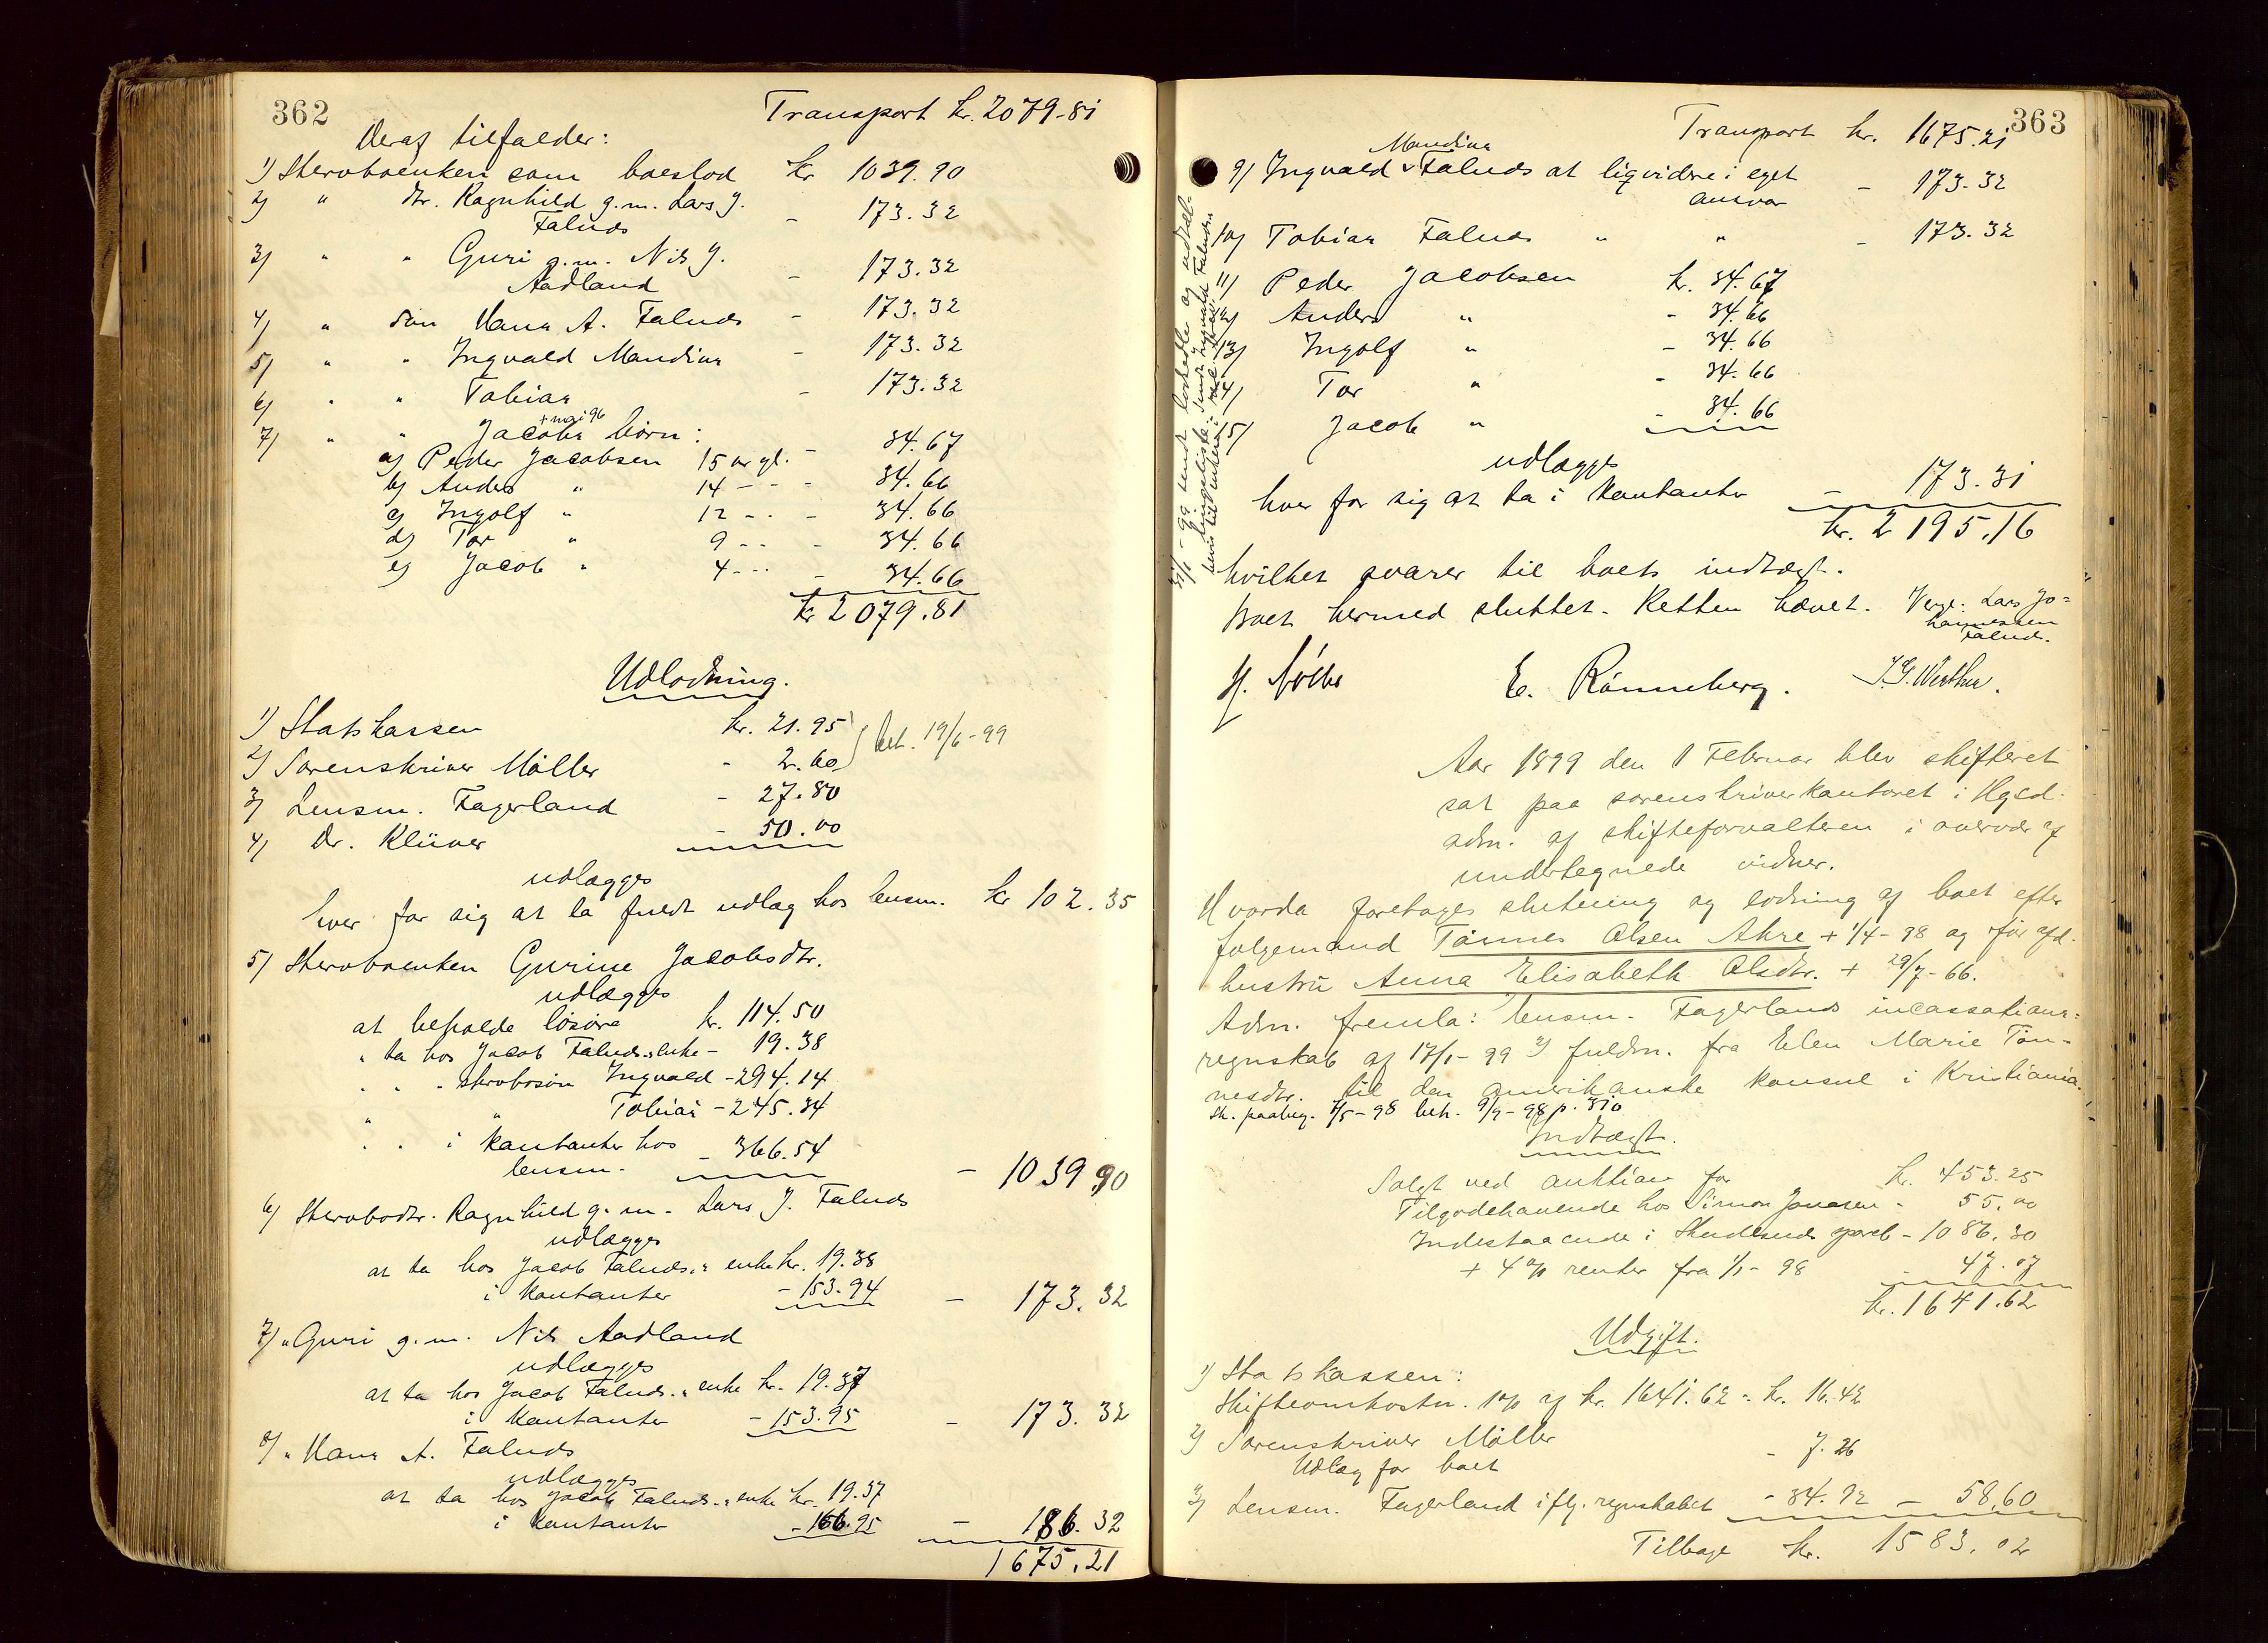 362
Transport kr. 2079-81
Heraf tilfalder:
1) Stervboenken som boeslod kr 1039.90
2) " dtr. Ragnhild g.m. Lars J.
Falnds - 173.32
3) " " Guri g.m. Nils J.
Aadland - 173.32
4) " søn Hans A. Falnds - 173.32
5) " " Ingvald Mandius - 173.32
6) " " Tobias - 173.32
+ mai 96
7) " " Jacobs børn:
a) Peder Jacobsen 15 aar gl. - 34.67
b) Anders " 14 - - - 34.66
c) Ingolf " 12 - - - 34.66
d) Tor " 9 - - - 34.66
e) Jacob " 4 - - - 34.66
kr 2079.81
Udlodning.
1) Statskassen kr. 21.95
2) Sorenskriver Møller - 2.60 } bet. 19/6-99
3) Lensm. Fagerland - 27.80
4) Dr. Klüver - 50.00
udlægges
hver for sig at ta fuldt udlæg hos lensm. kr 102.35
5) Stervboenken Gurine Jacobsdtr.
udlægges
at beholde løsøre kr. 114.50
" ta hos Jacob Falnds. enke - 19.38
" " " stervbosøn Ingvald - 294.14
" " Tobias - 245.34
" " i kontanter hos
lensm. - 366.54 - 1039.90
6) Stervbodtr. Ragnhild g. m. Lars J. Falnds
udlægges
at ta hos Jacob Falnds. enke kr. 19.38
i kontanter - 153.94 - 173.32
7) " Guri g. m. Nils Aadland
udlægges
at ta hos Jacob Falnds. enke kr. 19.37
i kontanter - 153.95 - 173.32
8) " Hans A. Falnds
udlægges
at ta hos Jacob Falnds. enke kr. 19.37
i kontanter - 166.95 - 186.32
1675.21
363
Transport kr. 1675.21
Mandius
9) Ingvald Falnds at liqvidere i eget
ansvar - 173.32
10) Tobias Falnds " " - 173.32
11) Peder Jacobsen kr. 34.67
12) Anders " - 34.66
13) Ingolf " - 34.66
14) Tor " - 34.66
15) Jacob " - 34.66
udlægges
hver for sig at ta i kontanter - 173.31
kr. 2195.16
hvilket svarer til boets indtægt.
Boet hermed sluttet. Retten hævet. Verge: Lars Jo-
hannessen
Falnd.
H. Møller E. Rønneberg. J.G. Werther.
Aar 1899 den 1 Februar blev skifteret
sat paa sorenskriverkontoret i Hgsd.
adm. af skifteforvalteren i overvær af
undertegnede vidner.
Hvorda foretages slutning og lodning af boet efter
folgemand Tønnes Olsen Ahre + 1/4-98 og før afd.
hustru Anna Elisabeth Olsdtr. + 29/7-66.
Adm. fremla: lensm. Fagerlands incassations-
regnskab af 17/1-99 2) fuldm. fra Elen Marie Tøn-
nesdtr. til den amerikanske konsul i Kristiania.
Sk. paabeg. 7/5-98 beh. 9/9-98 p. 310
Indtægt.
Solgt ved auktion for kr. 453.25
Tilgodehavende hos Simon Jonasen - 55.00
Indestaaende i Skudesnds spareb - 1086.30
+ 4 % renter fra 1/1-98 - 47.07
kr. 1641.62
Udgift.
1) Statskassen:
Skifteomkostn. 1 % af kr. 1641.62 = kr. 16.42
2) Sorenskriver Møller
Udlæg for boet - 7.26
3) Lensm. Fagerland iflg. regnskabet - 34.92 - 58.60
Tilbage kr. 1583.02